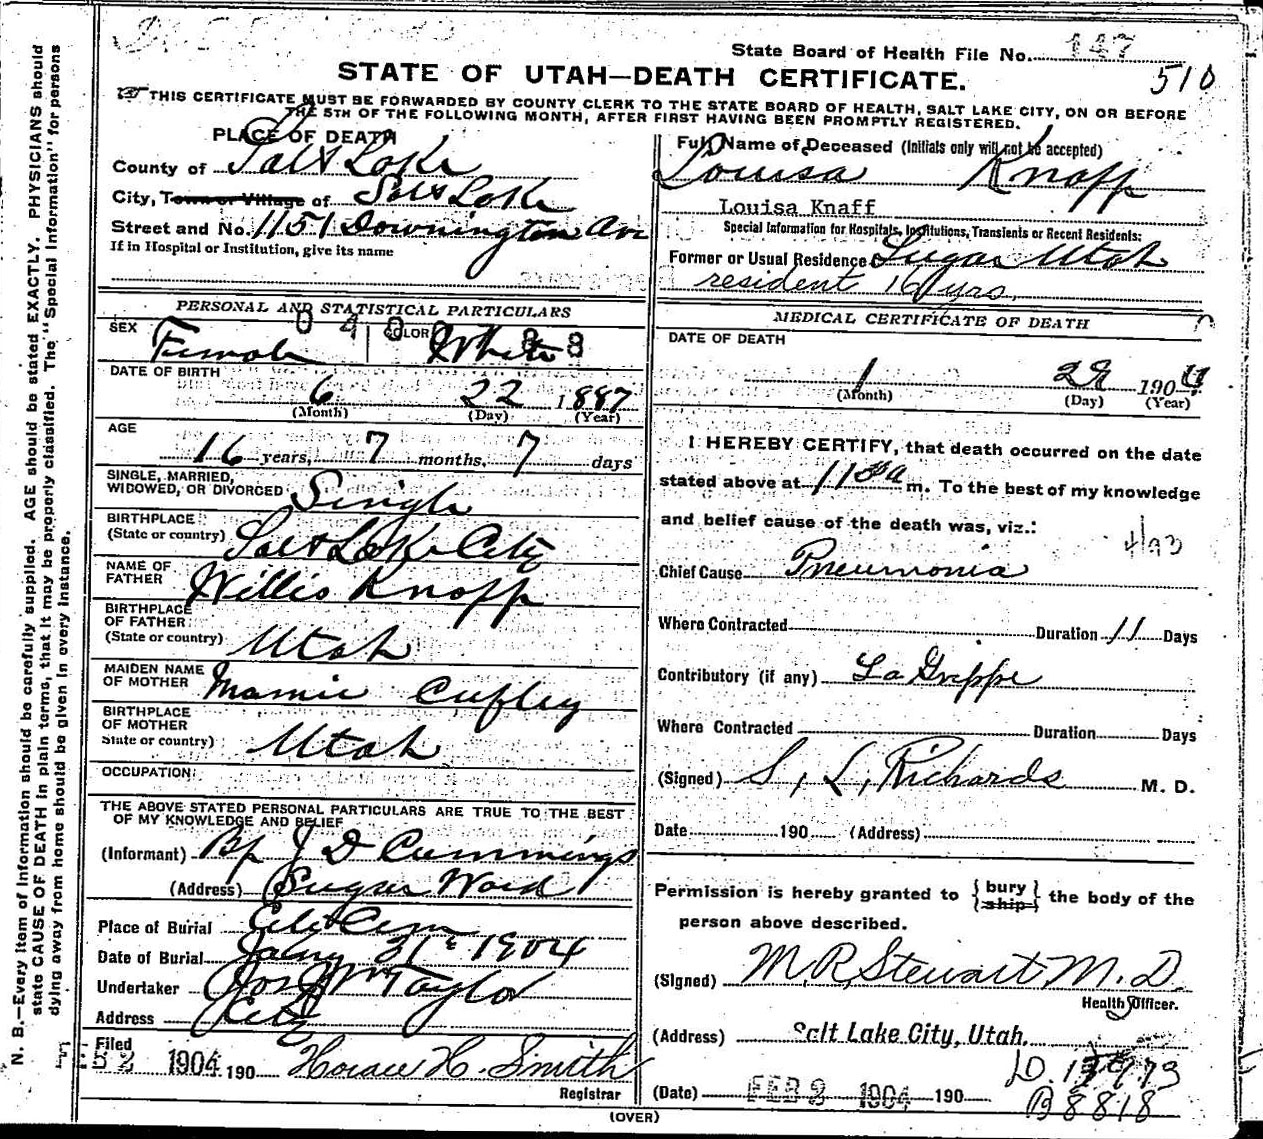 State Board of Health File No. 147
510
STATE OF UTAH—DEATH CERTIFICATE.
THIS CERTIFICATE MUST BE FORWARDED BY COUNTY CLERK TO THE STATE BOARD OF HEALTH, SALT LAKE CITY, ON OR BEFORE
THE 5TH OF THE FOLLOWING MONTH, AFTER FIRST HAVING BEEN PROMPTLY REGISTERED.
PLACE OF DEATH
County of Salt Lake
City, Town or Village of Salt Lake
Street and No. 1151 Downington Ave
If in Hospital or Institution, give its name
Full Name of Deceased (Initials only will not be accepted)
Louisa Knapp
Louisa Knaff
Special Information for Hospitals, Institutions, Transients or Recent Residents:
Former or Usual Residence Sugar Utah
resident 16 yrs.
PERSONAL AND STATISTICAL PARTICULARS
SEX Female COLOR White
DATE OF BIRTH
6 22 1887
(Month) (Day) (Year)
AGE
16 years, 7 months, 7 days
SINGLE, MARRIED,
WIDOWED, OR DIVORCED Single
BIRTHPLACE
(State or country) Salt Lake City
NAME OF
FATHER Willis Knapp
BIRTHPLACE
OF FATHER
(State or country) Utah
MAIDEN NAME
OF MOTHER Mamie Cufley
BIRTHPLACE
OF MOTHER
State or country) Utah
OCCUPATION
THE ABOVE STATED PERSONAL PARTICULARS ARE TRUE TO THE BEST
OF MY KNOWLEDGE AND BELIEF
(Informant) Bp J D Cummings
(Address) Sugar Ward
Place of Burial City Cem
Date of Burial 31st 1904
Undertaker Jos Wm Taylor
Address City
Filed
1904 190 Horace H. Smith
Registrar
MEDICAL CERTIFICATE OF DEATH
DATE OF DEATH
1 29 1904
(Month) (Day) (Year)
I HEREBY CERTIFY, that death occurred on the date
stated above at m. To the best of my knowledge
and belief cause of the death was, viz.:
Chief Cause Pneumonia
Where Contracted Duration 11 Days
Contributory (if any) La Grippe
Where Contracted Duration Days
(Signed) S. L. Richards M. D.
Date 190 (Address)
Permission is hereby granted to { bury ship } the body of the
person above described.
(Signed) M. R. Stewart, M. D.
Health Officer.
(Address) Salt Lake City, Utah.
(Date) FEB 2 1904 190
B 8818
(OVER)
N. B.—Every item of information should be carefully supplied. AGE should be stated EXACTLY. PHYSICIANS should
state CAUSE OF DEATH in plain terms, that it may be properly classified. The "Special Information" for persons
dying away from home should be given in every instance.